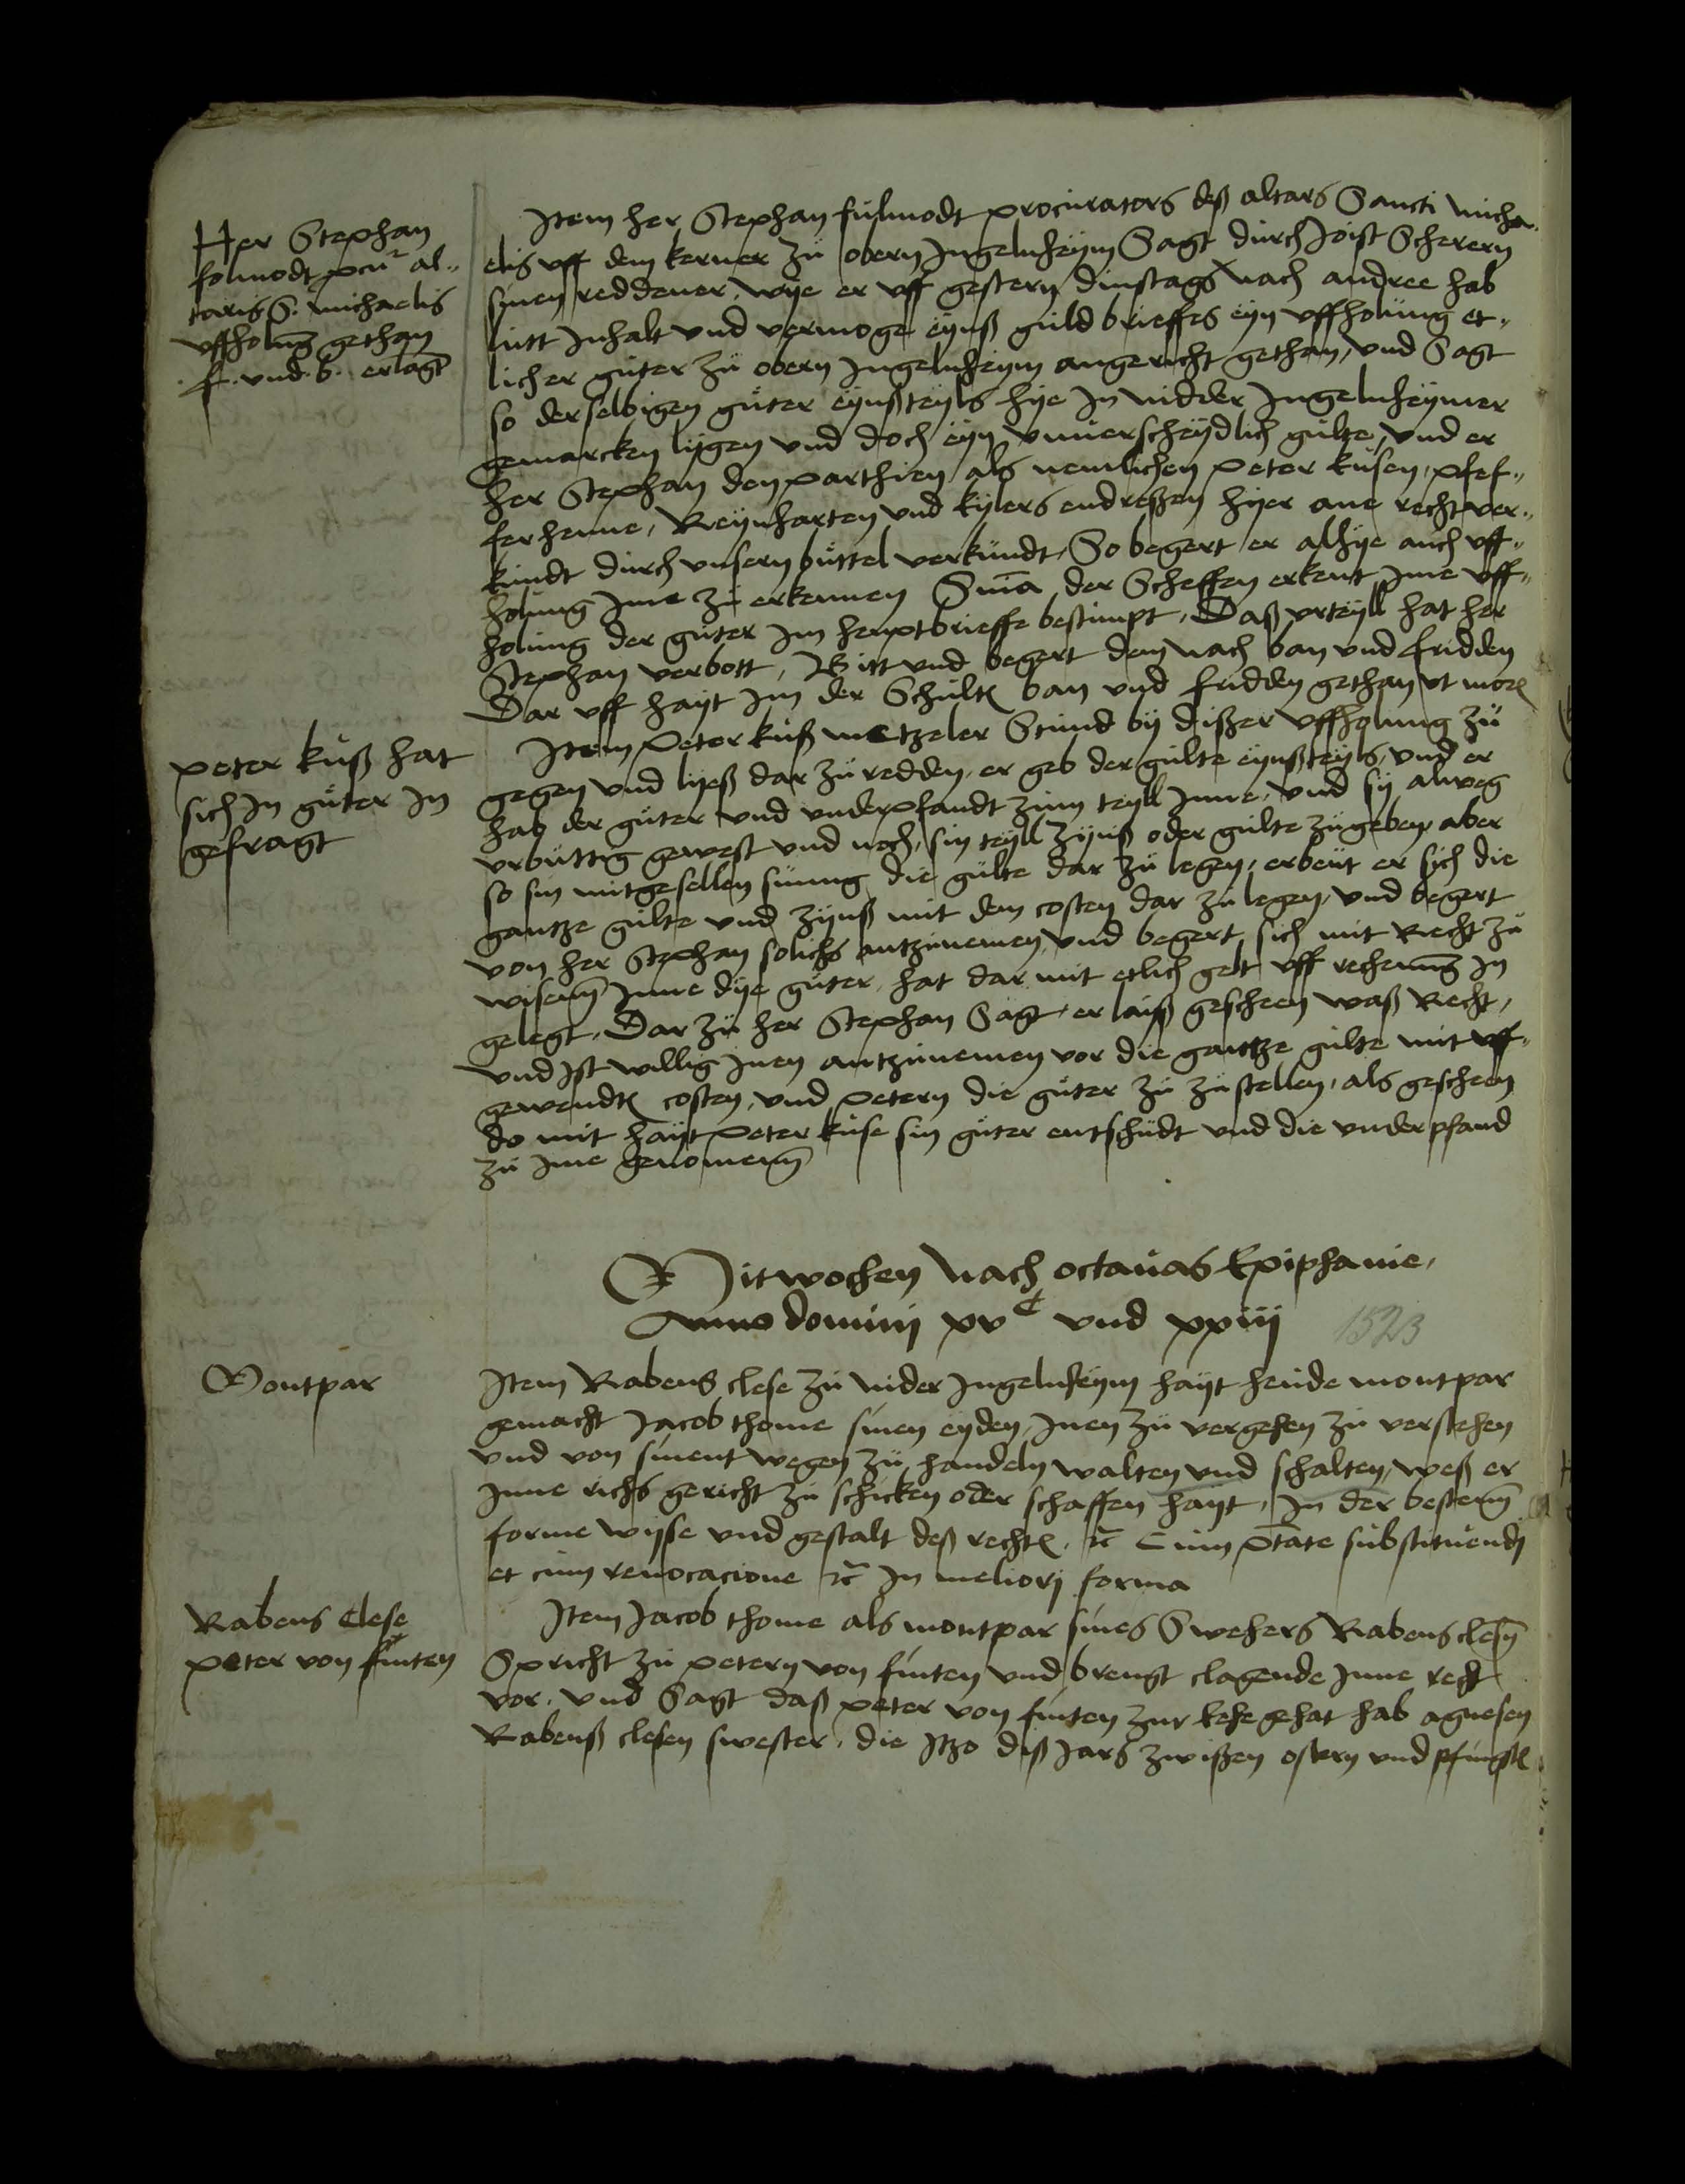 Her Stephan
folmodt pcu² al-
taris S. michaelis
uffholung gethan
f. und. b. erlagt
Item her Stephan fulmodt procurators deß altars Sancti micha-
elis uff dem kerner zu obern Ingelnheym Sagt durch Joist Scherern
synen reddener, wye er uff gestern dinstags nach andree hab
lutt Inhalt und vermoge eynß guldbrieffes eyn uffholung et-
licher guter zu obern Ingelnheym angericht gethan, und Sagt
so derselbigen guter eynßteyls hye In nidder Ingelnheymer
gemarcken lygen und doch eyn unuerscheydlich gulte, und er
her Stephan den parthien als nemlichen Peter kusen, pfef-
ferhenne, Reynharten und kylers endreßen hyer ane recht ver-
kundt durch unsern buttel verkundt, So begert er alhye auch uff-
holung Ime zu erkennen Sma, der Scheffen erkent Ime uff-
holung der guter Im heuptbrieffe bestimpt, Daß urteyll hat her
Stephan verbott, Bitt und begert dem nach ban und fridden
Dar uff hayt Im der Schult ban und fridden gethan ut mor
peter kuß hat
sich In guter In
gefragt
Item Peter kuß metzeler Stund by dißer uffholung zu
gegen und lyeß dar zu redden, er geb der gulte eynßteyls, und er
hab der guter und underpfandt zum teyll Inne, und sy alweg
urbuttig gewest und noch, sin teyll zynß oder gulte zu geben, aber
so sin mitgesellen sumig die gulte dar zu legen, erbeut er sich die
gantze gulte und zynß mit dem costen dar zu legen, und begert
von her Stephan solichs antzunemen, und begert sich mit Recht zu
wisenn Inne dye guter, hat dar mit etlich gelt uff rechenung In
gelegt, Dar zu her Stephan Sagt, er laiß gescheen waß Recht,
und Ist willig Inen antzunemen vor die gantze gulte mit uff-
gewendt costen, und Petern die guter zu zu stellen, als gescheen
do mit hayt Peter kuse sin guter entschudt und die underpfand
zu Ime genomenn
Mitwochen nach octauas Epiphanie,
Anno domini xv^c und xxiij 1523
Montpar
Item Rabens clese zu nider Ingelnheym hayt heude montpar
gemacht Jacob thome sinen eyden, Inen zu vergehen zu verstehen
und von sinent wegen zu handeln walten und schalten, weß er
Inne richs gericht zu schicken oder schaffen hayt, In der bestenn
forme wyse und gestalt deß recht, rc Cum ptate substituendj
et cum reuocacione rc In meliorj forma
Rabens Clese
Peter von finten
Item Jacob thome als montpar sines Swehers Rabens clesn
Spricht zu Petern von finten und brengt clagende Inne recht
vor, und Sagt daß Peter von finten zur kehe gehat hab agnesen
Rabenß clesen swester, die Itzo diß Jars zwißen ostern und pfingst